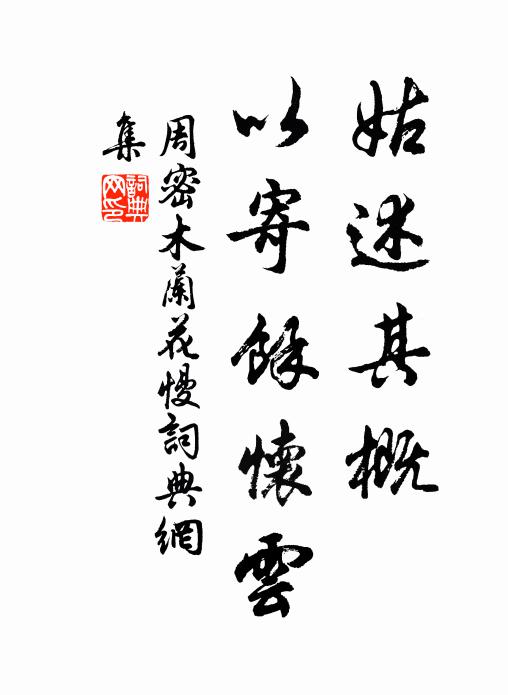 姑述其概
以寄餘懷雲
周密木蘭花慢詞典網
集
詞典
网印